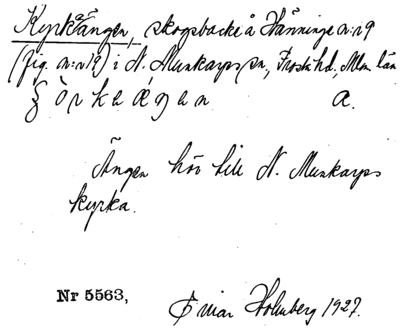 Kyrkängen, skogsbacke å Hänninge n:r 9
(fig. n:r 19) i N. Munkarps sn, Frosta hd, Mlm. län
a.
Ängen hör till N. Munkarps
kyrka.
Nr 5563, Einar Holmberg 1927.